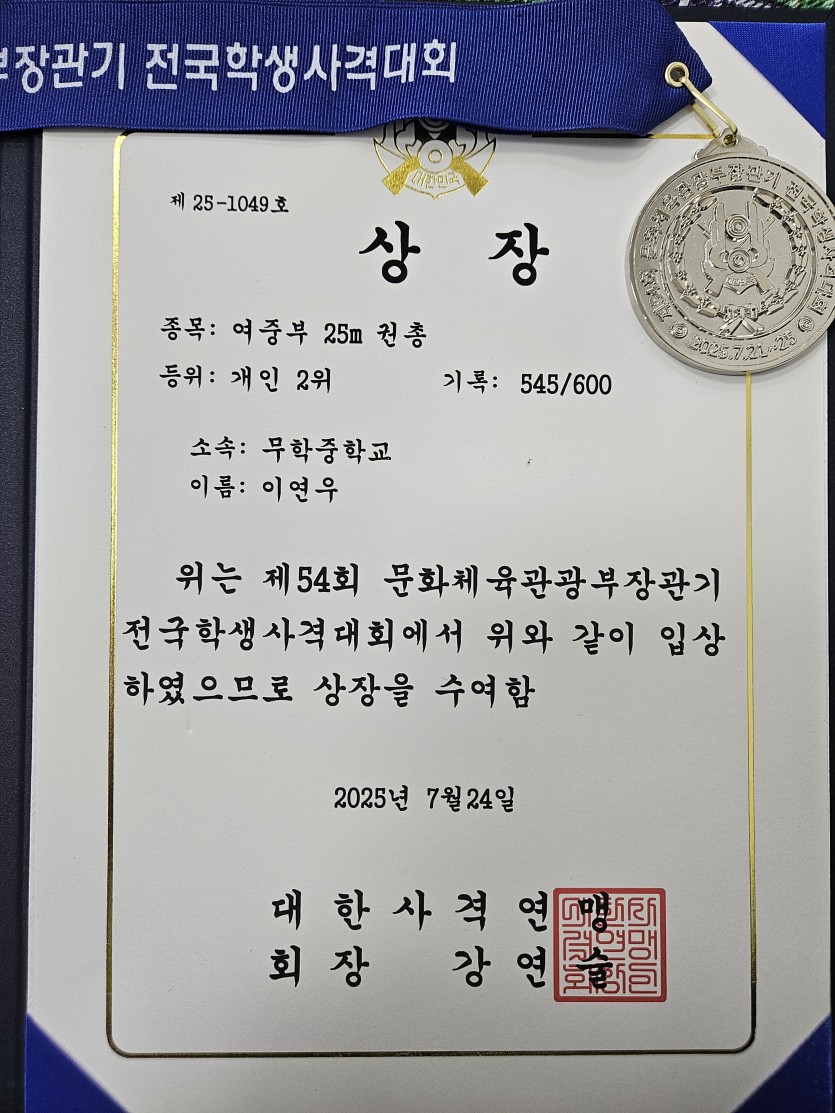 부장관기 전국학생사격대회
대한민국
제 25-1049호
상 장
종목: 여중부 25m 권총
등위: 개인 2위 기록: 545/600
소속: 무학중학교
이름: 이연우
위는 제54회 문화체육관광부장관기
전국학생사격대회에서 위와 같이 입상
하였으므로 상장을 수여함
2025년 7월24일
대 한 사 격 연 맹
회 장 강 연 술
제54회 문화체육관광부장관기 전국학생사격대회
2025.7.21~25